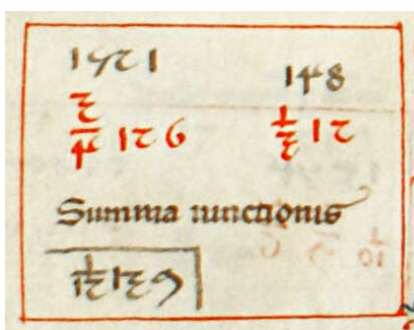 1521 148
3/4 126 1/3 12
Summa iunctionis
1/12 139